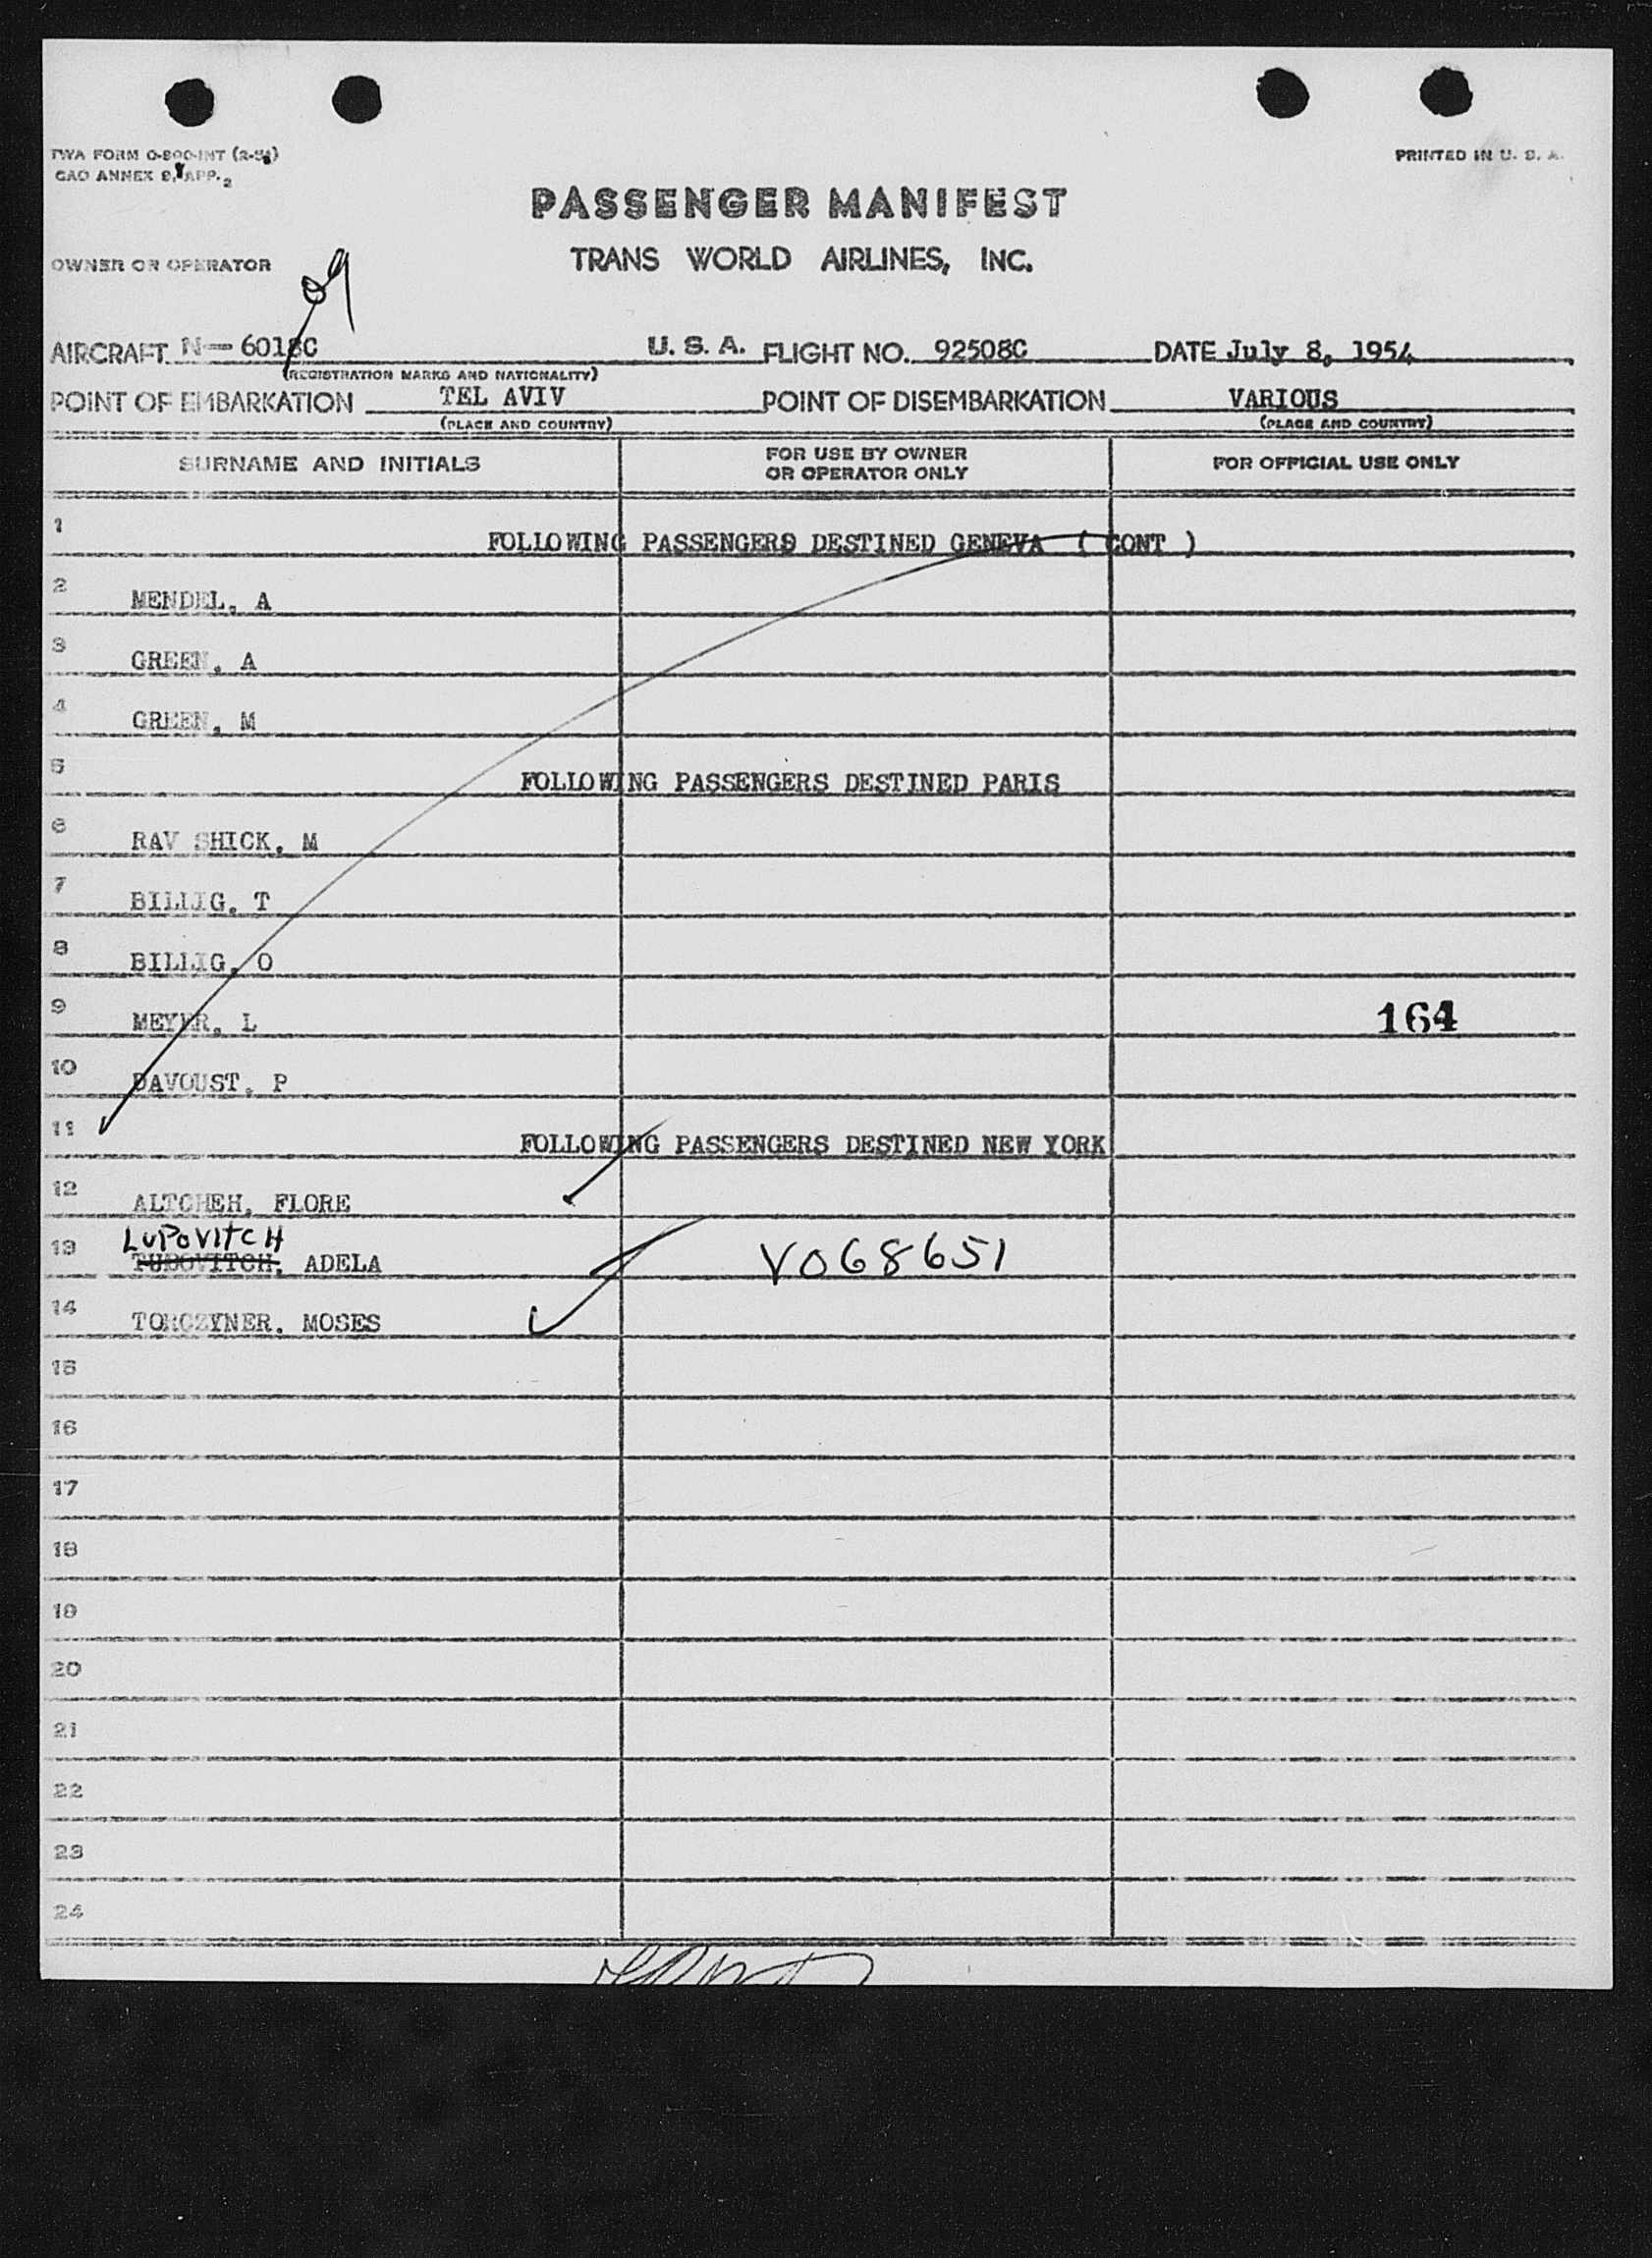 TWA FORM O-800-INT
PRINTED IN U. S. A.
CAO ANNEX 9, APP. 2
PASSENGER MANIFEST
OWNER OR OPERATOR
TRANS WORLD AIRLINES, INC.
AIRCRAFT N- 6018C U. S. A. FLIGHT NO. 92508C DATE July 8, 1954
09
(REGISTRATION MARKS AND NATIONALITY)
POINT OF EMBARKATION TEL AVIV POINT OF DISEMBARKATION VARIOUS
(PLACE AND COUNTRY) (PLACE AND COUNTRY)
SURNAME AND INITIALS FOR USE BY OWNER OR OPERATOR ONLY FOR OFFICIAL USE ONLY
1 FOLLOWING PASSENGERS DESTINED GENEVA ( CONT )
2 MENDEL, A
3 GREEN, A
4 GREEN, M
5 FOLLOWING PASSENGERS DESTINED PARIS
6 RAV SHICK, M
7 BILLIG, T
8 BILLIG, O
9 MEYER, L 164
10 DAVOUST, P
11 FOLLOWING PASSENGERS DESTINED NEW YORK
12 ALTCHEH, FLORE
LUPOVITCH
13 TUBOVITCH, ADELA V068651
14 TORCZYNER, MOSES
15
16
17
18
19
20
21
22
23
24